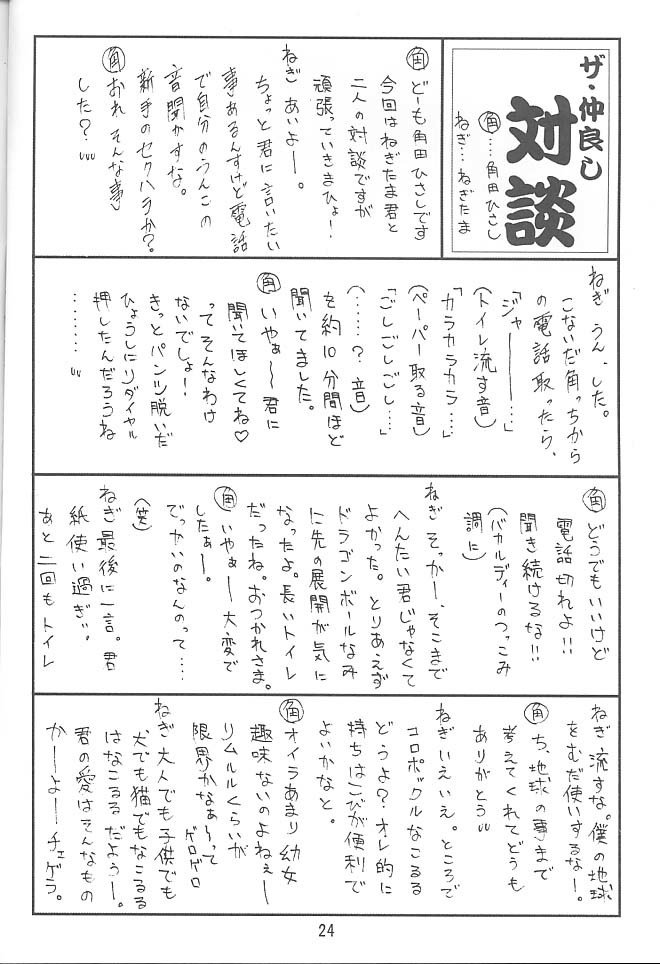 ザ・仲良し
対談
角…角田ひさし
ねぎ…ねぎたま
角 どーも角田ひさしです
今回はねぎたま君と
二人の対談ですが
頑張っていきまひょ!
ねぎ あいよー。
ちょっと君に言いたい
事あるんすけど電話
で自分のうんこの
音聞かすな。
新手のセクハラか?
角 おれ そんな事
した?
ねぎ うん、した。
こないだ角っちから
の電話取ったら、
「ジャー――――…」
(トイレ流す音)
「カラカラカラ…」
(ペーパー取る音)
「ごしごしごし…」
(……?音)
を約10分間ほど
聞いてました。
角 いやぁ〜君に
聞いてほしくてね♡
ってそんなわけ
ないでしょ!
きっとパンツ脱いだ
ひょうしにリダイヤル
押したんだろうね
………
角 どうでもいいけど
電話切れよ!!
聞き続けるな!!
(バカルディーのつっこみ
調に)
ねぎ そっかー、そこまで
へんたい君じゃなくて
よかった。とりあえず
ドラゴンボールなみ
に先の展開が気に
なったよ。長いトイレ
だったね。おつかれさま。
角 いやぁー大変で
したぁー。
でっかいのなんのって……
(笑)
ねぎ 最後に一言。君
紙使い過ぎ。
あと二回もトイレ
ねぎ 流すな。僕の地球
をむだ使いするなー。
角 ち、地球の事まで
考えてくれてどうも
ありがとう
ねぎ いえいえ。ところで
コロポックルなこるる
どうよ?オレ的に
持ちはこびが便利で
よいかなと。
角 オイラあまり幼女
趣味ないのよねぇー
リムルルくらいが
限界かなぁ〜って
ゲロゲロ
ねぎ 大人でも子供でも
犬でも猫でもなこるる
はなこるるだよぅー。
君の愛はそんなもの
かーよーチェゲラ。
24